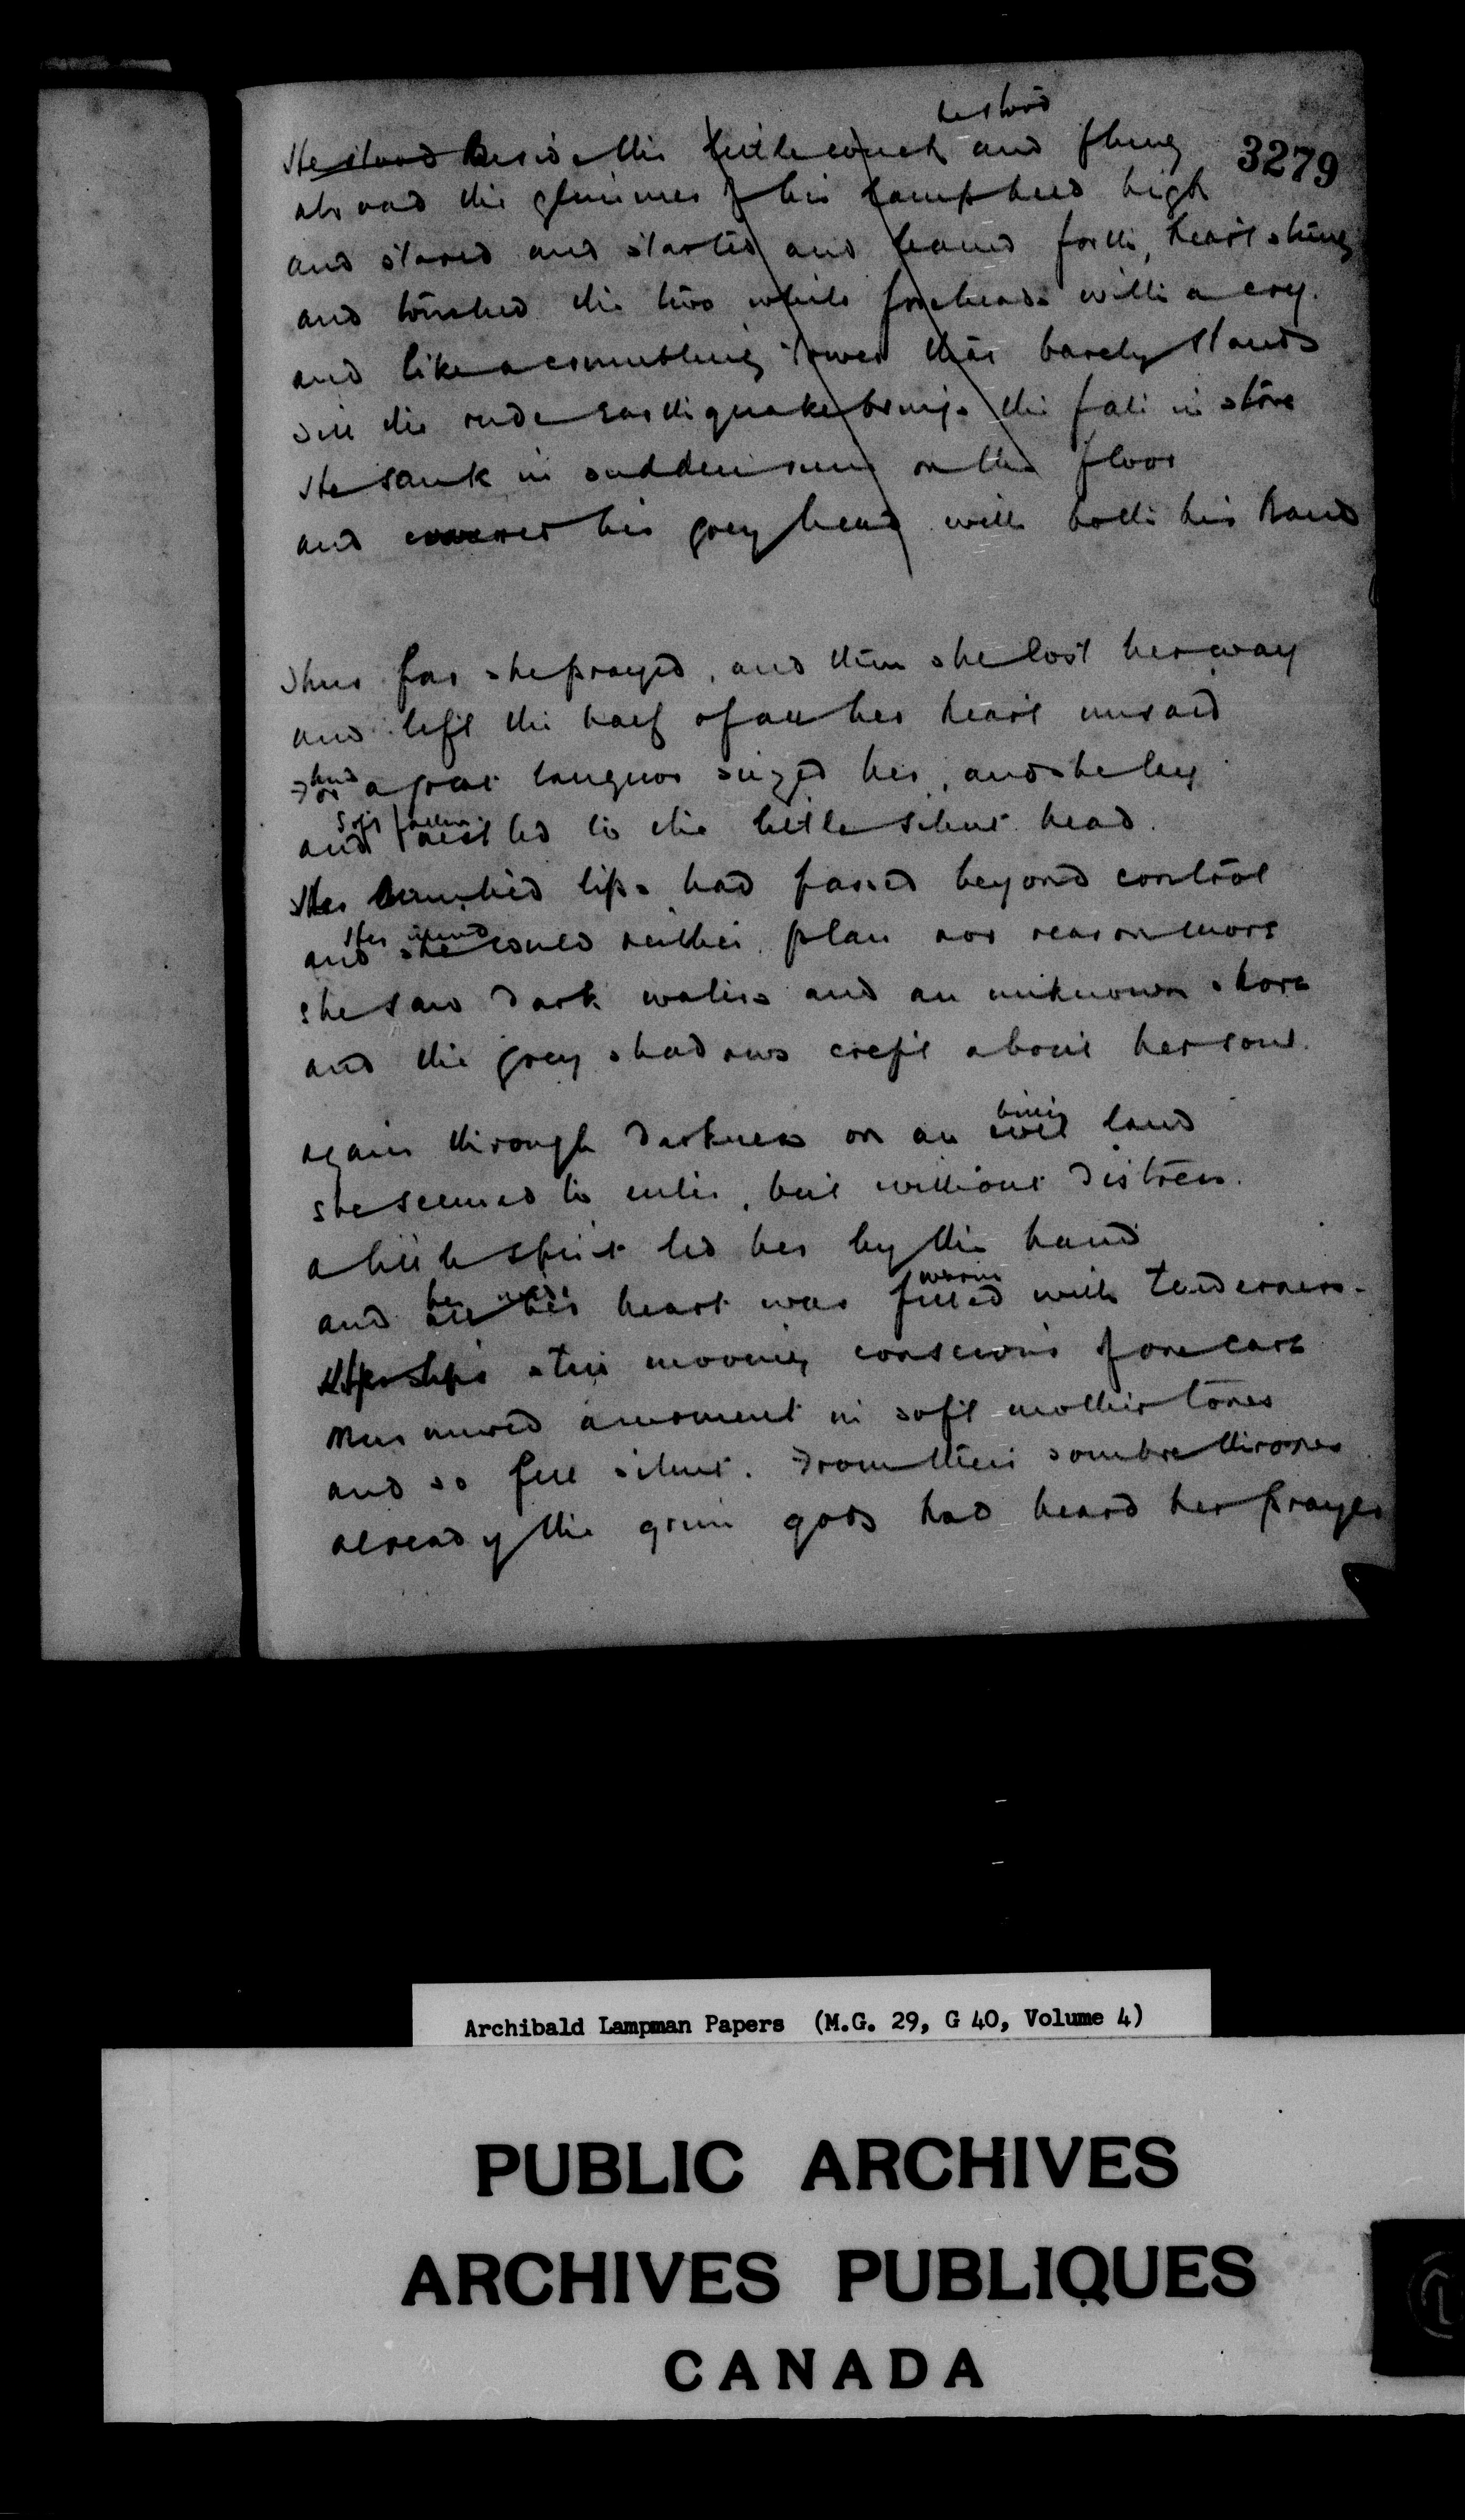 he stood
He stood Beside the little couch and flung 3279
abroad the glimmer of his lamp held high
and stared and started and leaned forth, heart stung
and touched the two white foreheads with a cry.
and like a crumbling tower that barely stands
till the rude earthquake brings the fate in store
He sank in sudden ruin on the floor
and covered his grey head with both his hands
Thus far she prayed, and then she lost her way
and left the half of all her heart unsaid
For a great languor seized her, and she lay
soft fallen
and nestled to the little silent head.
Her numbéd lips had passed beyond control
Her mind
and she could neither plan nor reason more
she saw dark waters and an unknown shore
and the grey shadows crept about her soul.
again through darkness on an evil land
she seemed to enter, but without distress.
a little spirit led her by the hand
warm
and all her heart was filled with tenderness.
Her lips still moving conscious of one care
Murmured a moment in soft mother tones
and so fell silent. From their sombre thrones
already the grim gods had heard her prayer
Archibald Lampman Papers (M.G. 29, G 40, Volume 4)
PUBLIC ARCHIVES
ARCHIVES PUBLIQUES
CANADA